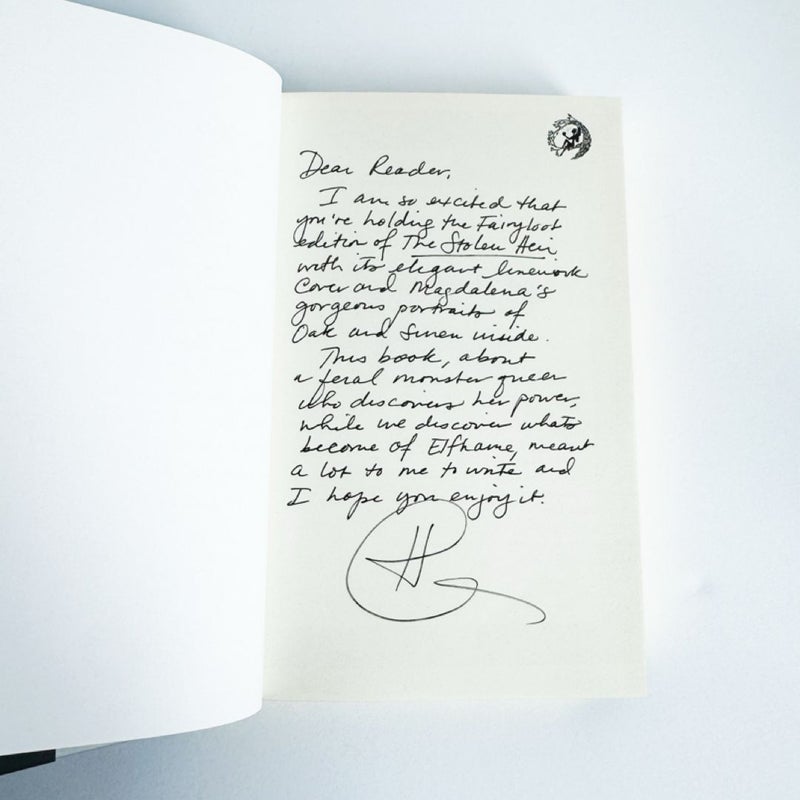 Dear Reader,
I am so excited that
you're holding the Fairyloot
edition of The Stolen Heir
with its elegant linework
Cover and Magdalena's
gorgeous portraits of
Oak and Suren inside.
This book, about
a feral monster queen
who discovers her power,
while we discover whats
become of Elfhame, meant
a lot to me to write and
I hope you enjoy it.